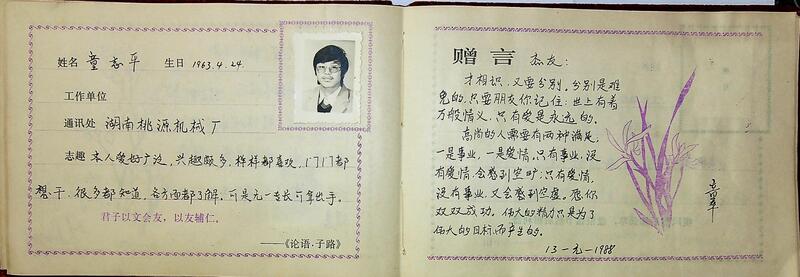 姓名 童志平 生日 1963.4.24.
工作单位
通讯处 湖南桃源机械厂
志趣 本人爱好广泛,兴趣颇多,样样都喜欢,门门都
想干,很多都知道,各方面都了解。可是无一专长可拿出手。
君子以文会友,以友辅仁。
——《论语·子路》
赠言 杰友:
才相识,又要分别。分别是难
免的,只要朋友你记住:世上有着
万般情义,只有爱是永远的。
高尚的人需要有两种满足,
一是事业,一是爱情。只有事业,没
有爱情,会感到空旷;只有爱情,
没有事业,又会感到空虚。愿你
双双成功。伟大的精力只是为了
伟大的目标而产生的。
13-元-1988